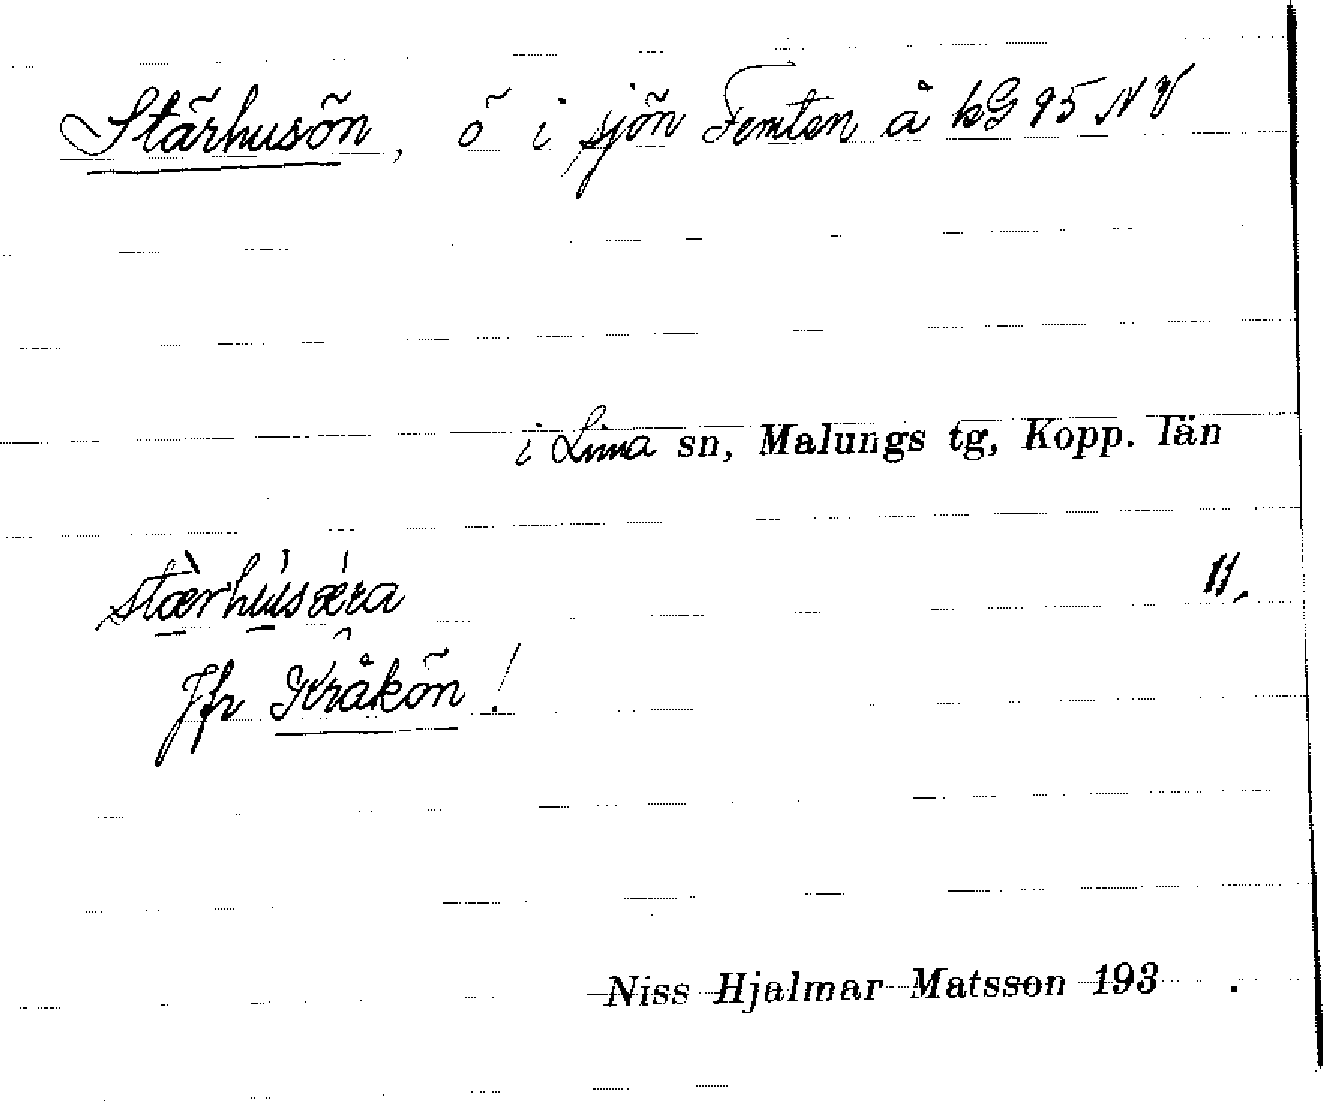 Stärhusön, ö i sjön Femten å kG 95 NV
i Lima sn, Malungs tg, Kopp. län
stærhúsǽra 11.
Jfr Kråkön!
Niss Hjalmar Matsson 193 .